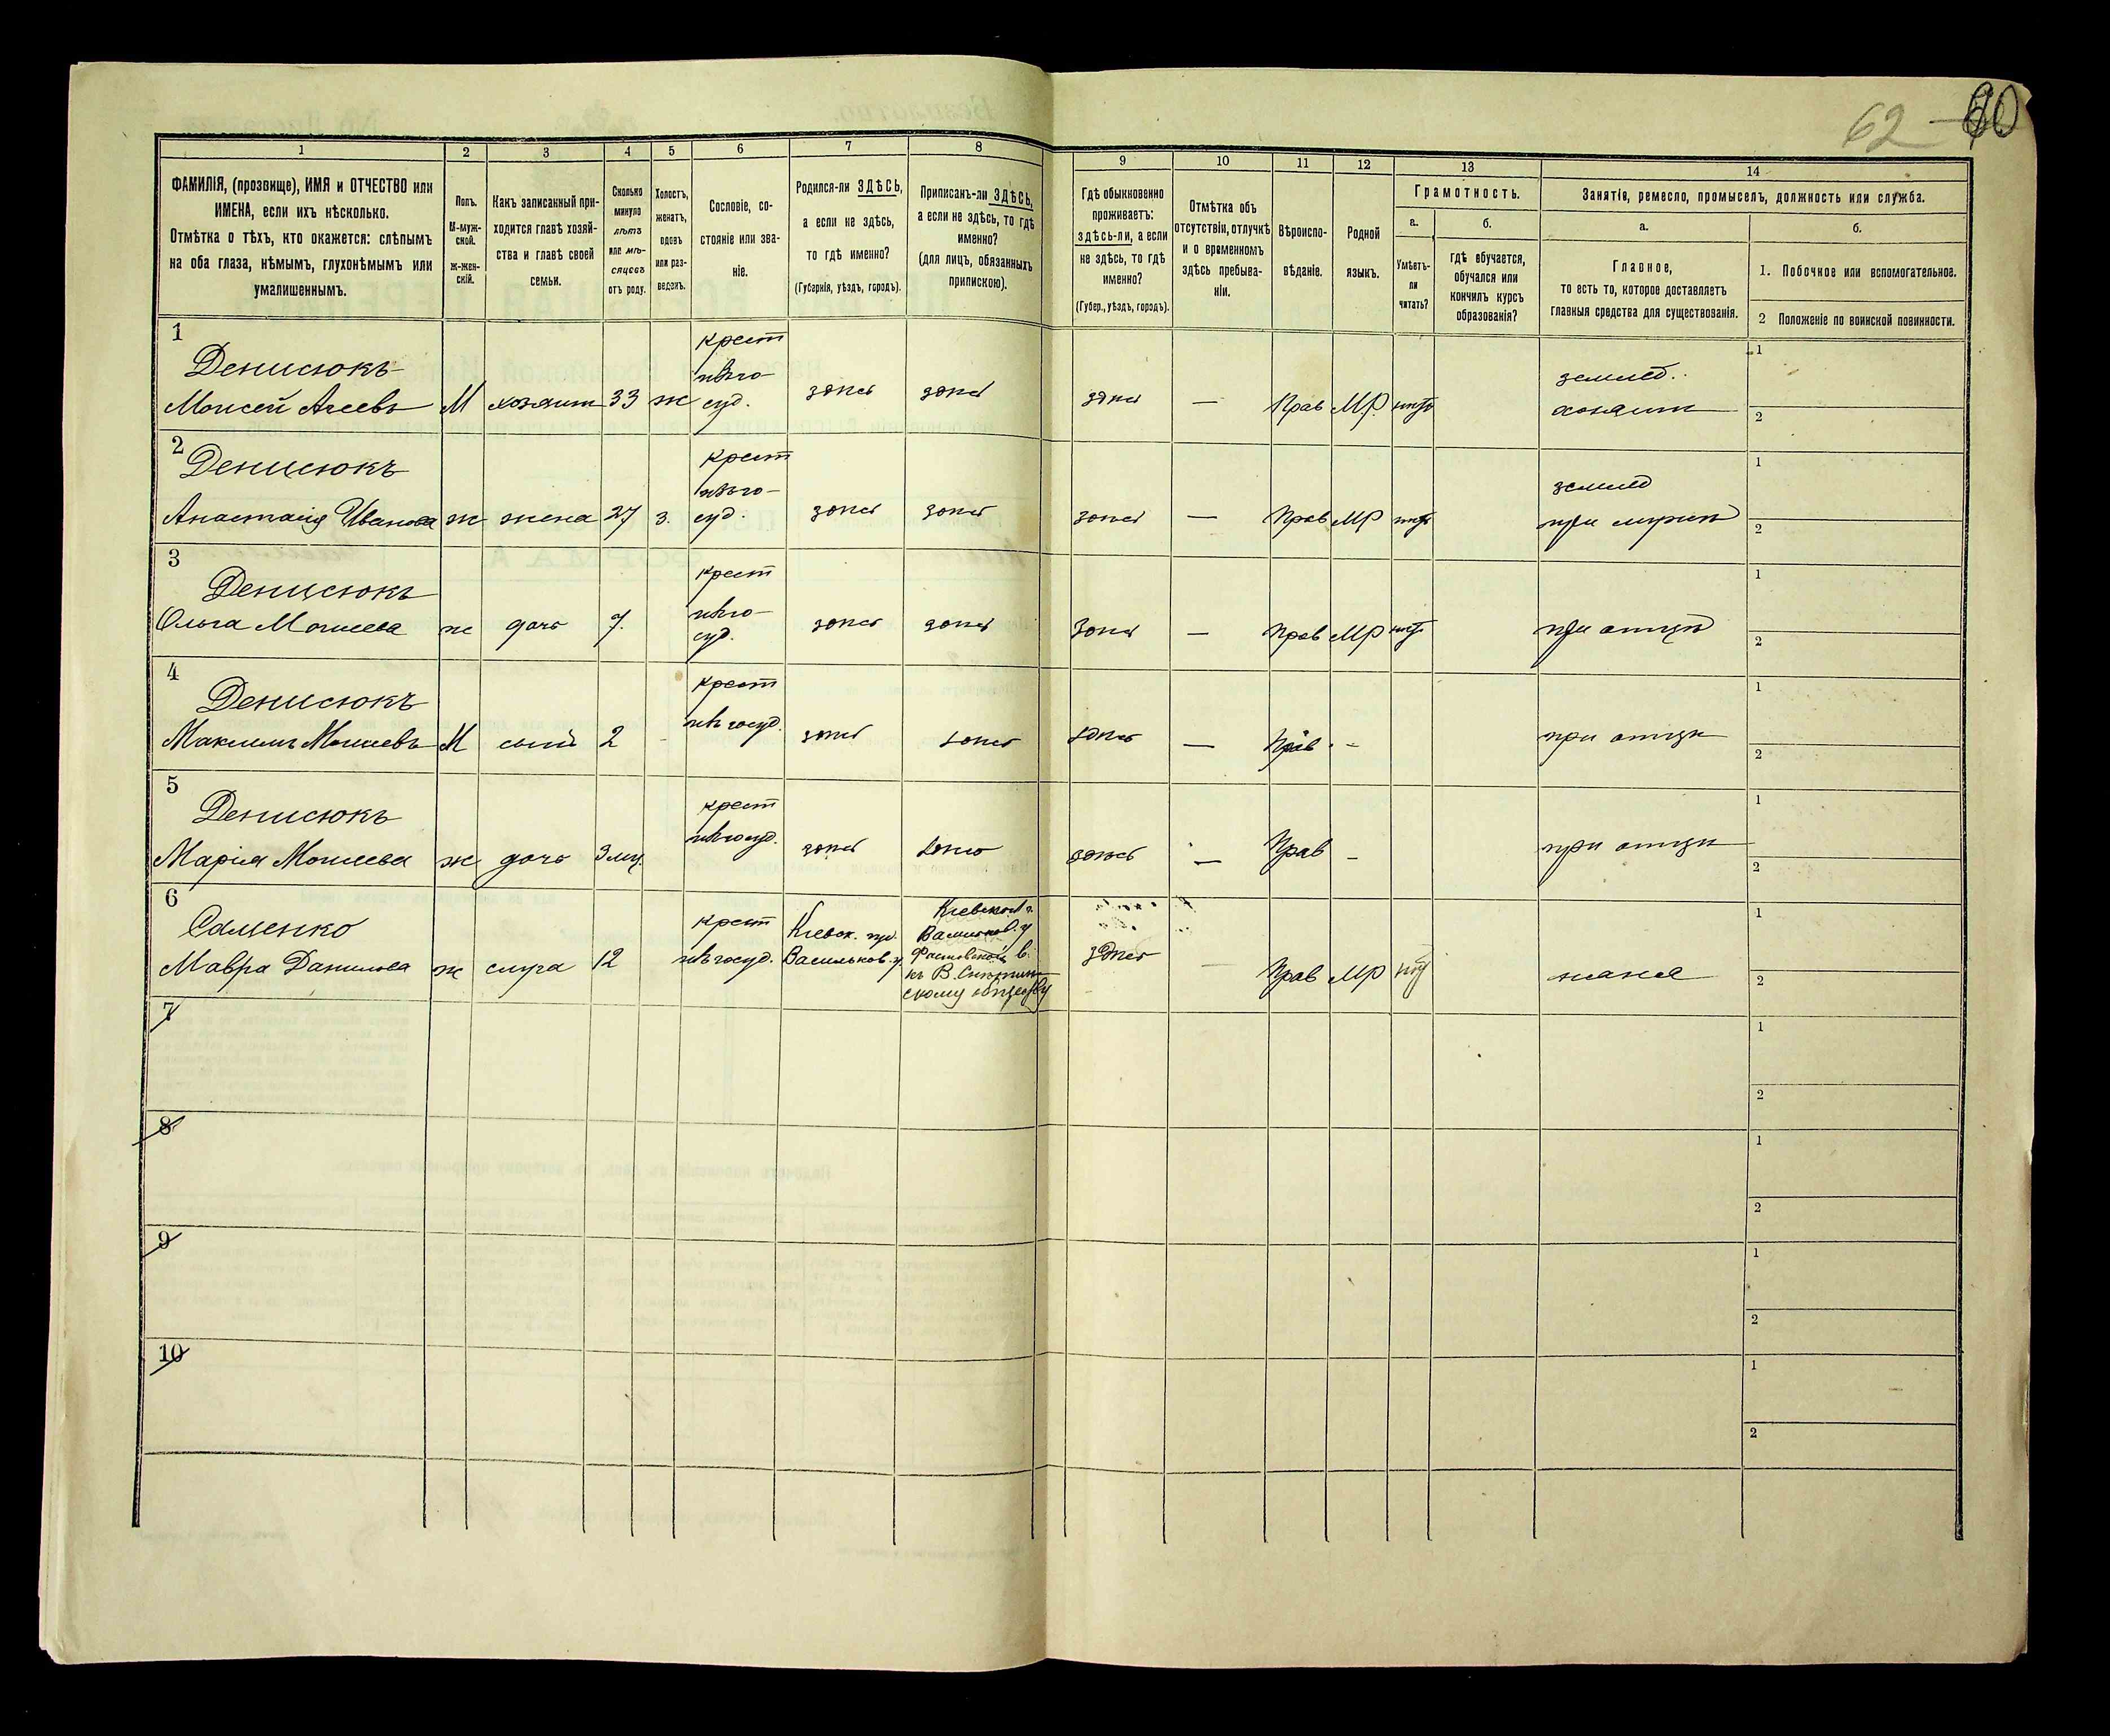 62 60
1 2 3 4 5 6 7 8 9 10 11 12 13 14
ФАМИЛІЯ, (прозвище), ИМЯ и ОТЧЕСТВО или
ИМЕНА, если ихъ нѣсколько.
Отмѣтка о тѣхъ, кто окажется: слѣпымъ
на оба глаза, нѣмымъ, глухонѣмымъ или
умалишеннымъ.
Полъ.
М-муж-
ской.
ж-жен-
скій.
Какъ записанный при-
ходится главѣ хозяй-
ства и главѣ своей
семьи.
Сколько
минуло
лѣтъ
или мѣ-
сяцевъ
отъ роду.
Холостъ,
женатъ,
вдовъ
или раз-
веденъ.
Сословіе, со-
стояніе или зва-
ніе.
Родился-ли ЗДѢСЬ,
а если не здѣсь,
то гдѣ именно?
(Губернія, уѣздъ, городъ).
Приписанъ-ли ЗДѢСЬ,
а если не здѣсь, то гдѣ
именно?
(для лицъ, обязанныхъ
припискою).
Гдѣ обыкновенно
проживаетъ:
здѣсь-ли, а если
не здѣсь, то гдѣ
именно?
(Губер., уѣздъ, городъ).
Отмѣтка объ
отсутствіи, отлучкѣ
и о временномъ
здѣсь пребыва-
ніи.
Вѣроиспо-
вѣданіе.
Родной
языкъ.
Грамотность.
а.
Умѣетъ-
ли
читать?
б.
гдѣ обучается,
обучался или
кончилъ курсъ
образованія?
Занятіе, ремесло, промыселъ, должность или служба.
а.
Главное,
то есть то, которое доставляетъ
главныя средства для существованія.
б.
1. Побочное или вспомогательное.
2 Положеніе по воинской повинности.
1
Денисюкъ
Моисей Агеевъ М хозяинъ 33 ж
крест
иѣго-
суд.
здѣсь здѣсь здѣсь — Прав МР. нѣтъ
землед.
хозяинъ
1
2
2
Денисюкъ
Анастасія Иванова ж жена 27 з.
крест
ивъго-
суд.
здѣсь здѣсь здѣсь — Прав МР нѣтъ
землед
при мужѣ
1
2
3
Денисюкъ
Ольга Моисеева ж дочь 7.
крест
ивъго-
суд.
здѣсь здѣсь здѣсь — Прав МР нѣтъ при отцѣ
1
2
4
Денисюкъ
Максимъ Моисеевъ М сынъ 2 -
крест
ивъ госуд.
здѣсь здѣсь здѣсь — Прав - при отцѣ
1
2
5
Денисюкъ
Марія Моисеева ж дочь 3 мц.
крест
ивъ госуд.
здѣсь здѣсь здѣсь — Прав - при отцѣ
1
2
6
Саленко
Мавра Данилова ж слуга 12
крест
ивъ госуд.
Кіевск. губ.
Васильков. у.
Кіевской г.
Васильков. у
Фастовской в.
скому обществу
здѣсь — Прав МР нѣт няня
1
2
7
1
2
8
1
2
9
1
2
10
1
2